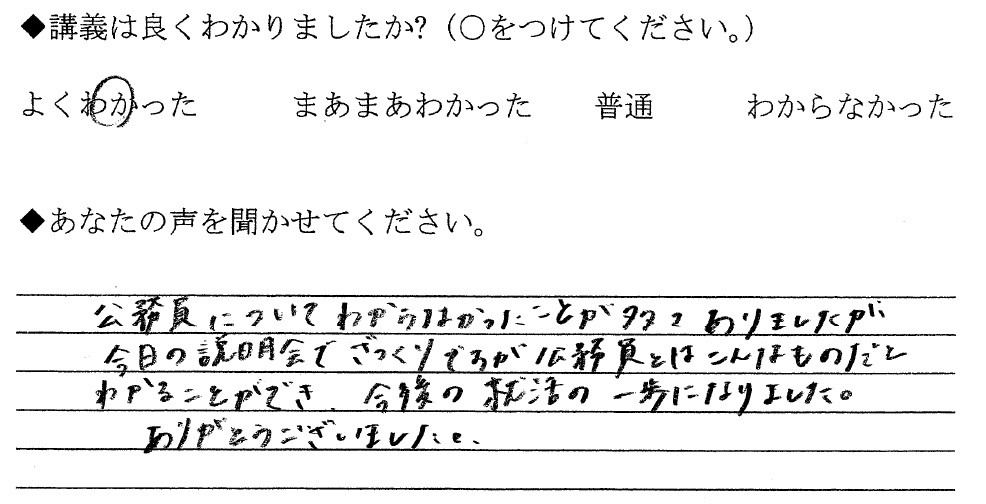 ◆講義は良くわかりましたか?（○をつけてください。）
よくわかった　まあまあわかった　普通　わからなかった
◆あなたの声を聞かせてください。
公務員についてわからなかったことが多々ありましたが
今日の説明会でざっくりですが公務員とはこんなものだと
わかることができ、今後の就活の一歩になりました。
ありがとうございました。